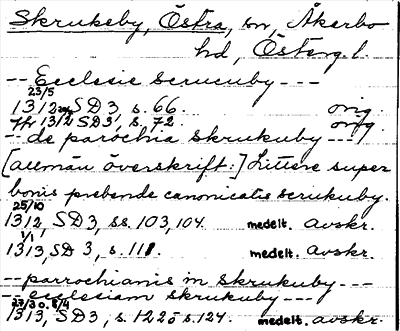 Skrukeby, Östra, sn, Åkerbo
hd, Österg.l.
-- Ecclesie scrucuby ---
23/5
1312 SD3, s. 66. orig.
7/7 1312 SD3, s. 72 orig.
-- de parochia skrukuby ---
[allmän överskrift:] Littere super
bonis prebende canonicatis scrukuby.
25/10
1312, SD3, ss. 103, 104. medelt. avskr.
1/1
1313, SD 3, s. 111. medelt. avskr.
-- parrochianis in skrukuby ---
-- ecclesiam skrukuby ---
27/3 o. 8/4
1313, SD3, s. 122 o s. 124. medelt. avskr.